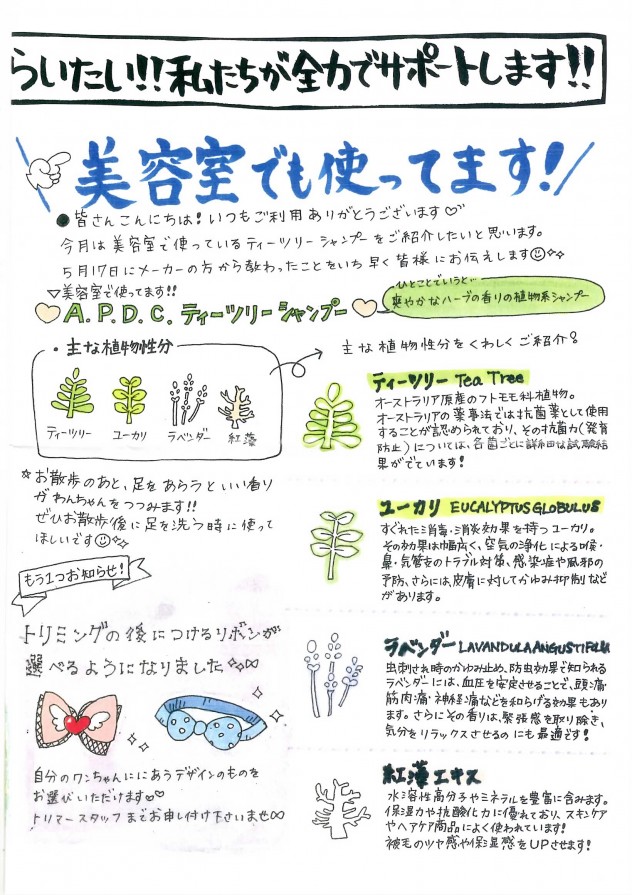 らいたい!!私たちが全力でサポートします!!
美容室でも使ってます!
●皆さんこんにちは!いつもご利用ありがとうございます♡
今月は美容室で使っているティーツリーシャンプーをご紹介したいと思います。
5月17日にメーカーの方から教わったことをいち早く皆様にお伝えします
▽美容室で使ってます!!
A.P.D.C.ティーツリーシャンプー
ひとことでいうと…
爽やかなハーブの香りの植物系シャンプー
・主な植物性分
ティーツリー ユーカリ ラベンダー 紅藻
主な植物性分をくわしくご紹介
☆お散歩のあと、足をあらうといい香り
がわんちゃんをつつみます!!
ぜひお散歩後に足を洗う時に使って
ほしいです
もう1つお知らせ!
トリミングの後につけるリボンが
選べるようになりました
自分のワンちゃんににあうデザインのものを
お選びいただけます
トリマースタッフまでお申し付け下さいませ
ティーツリー Tea Tree
オーストラリア原産のフトモモ科植物。
オーストラリアの薬事法では抗菌薬として使用
することが認められており、その抗菌力(発育
防止)については、各菌ごとに詳細な試験結
果がでています!
ユーカリ EUCALYPTUS GLOBULUS
すぐれた消毒・消炎効果を持つユーカリ。
その効果は幅広く、空気の浄化による喉・
鼻・気管支のトラブル対策、感染症や風邪の
予防、さらには、皮膚に対してかゆみ抑制など
があります。
ラベンダー LAVANDULA ANGUSTIFOLIA
虫刺され時のかゆみ止め、防虫効果で知られる
ラベンダーには、血圧を安定させることで、頭痛・
筋肉痛・神経痛などを和らげる効果もあり
ます。さらにその香りは、緊張感を取り除き、
気分をリラックスさせるのにも最適です!
紅藻エキス
水溶性高分子やミネラルを豊富に含みます。
保湿力や抗酸化力に優れており、スキンケア
やヘアケア商品によく使われています!
被毛のツヤ感や保湿感をUPさせます!